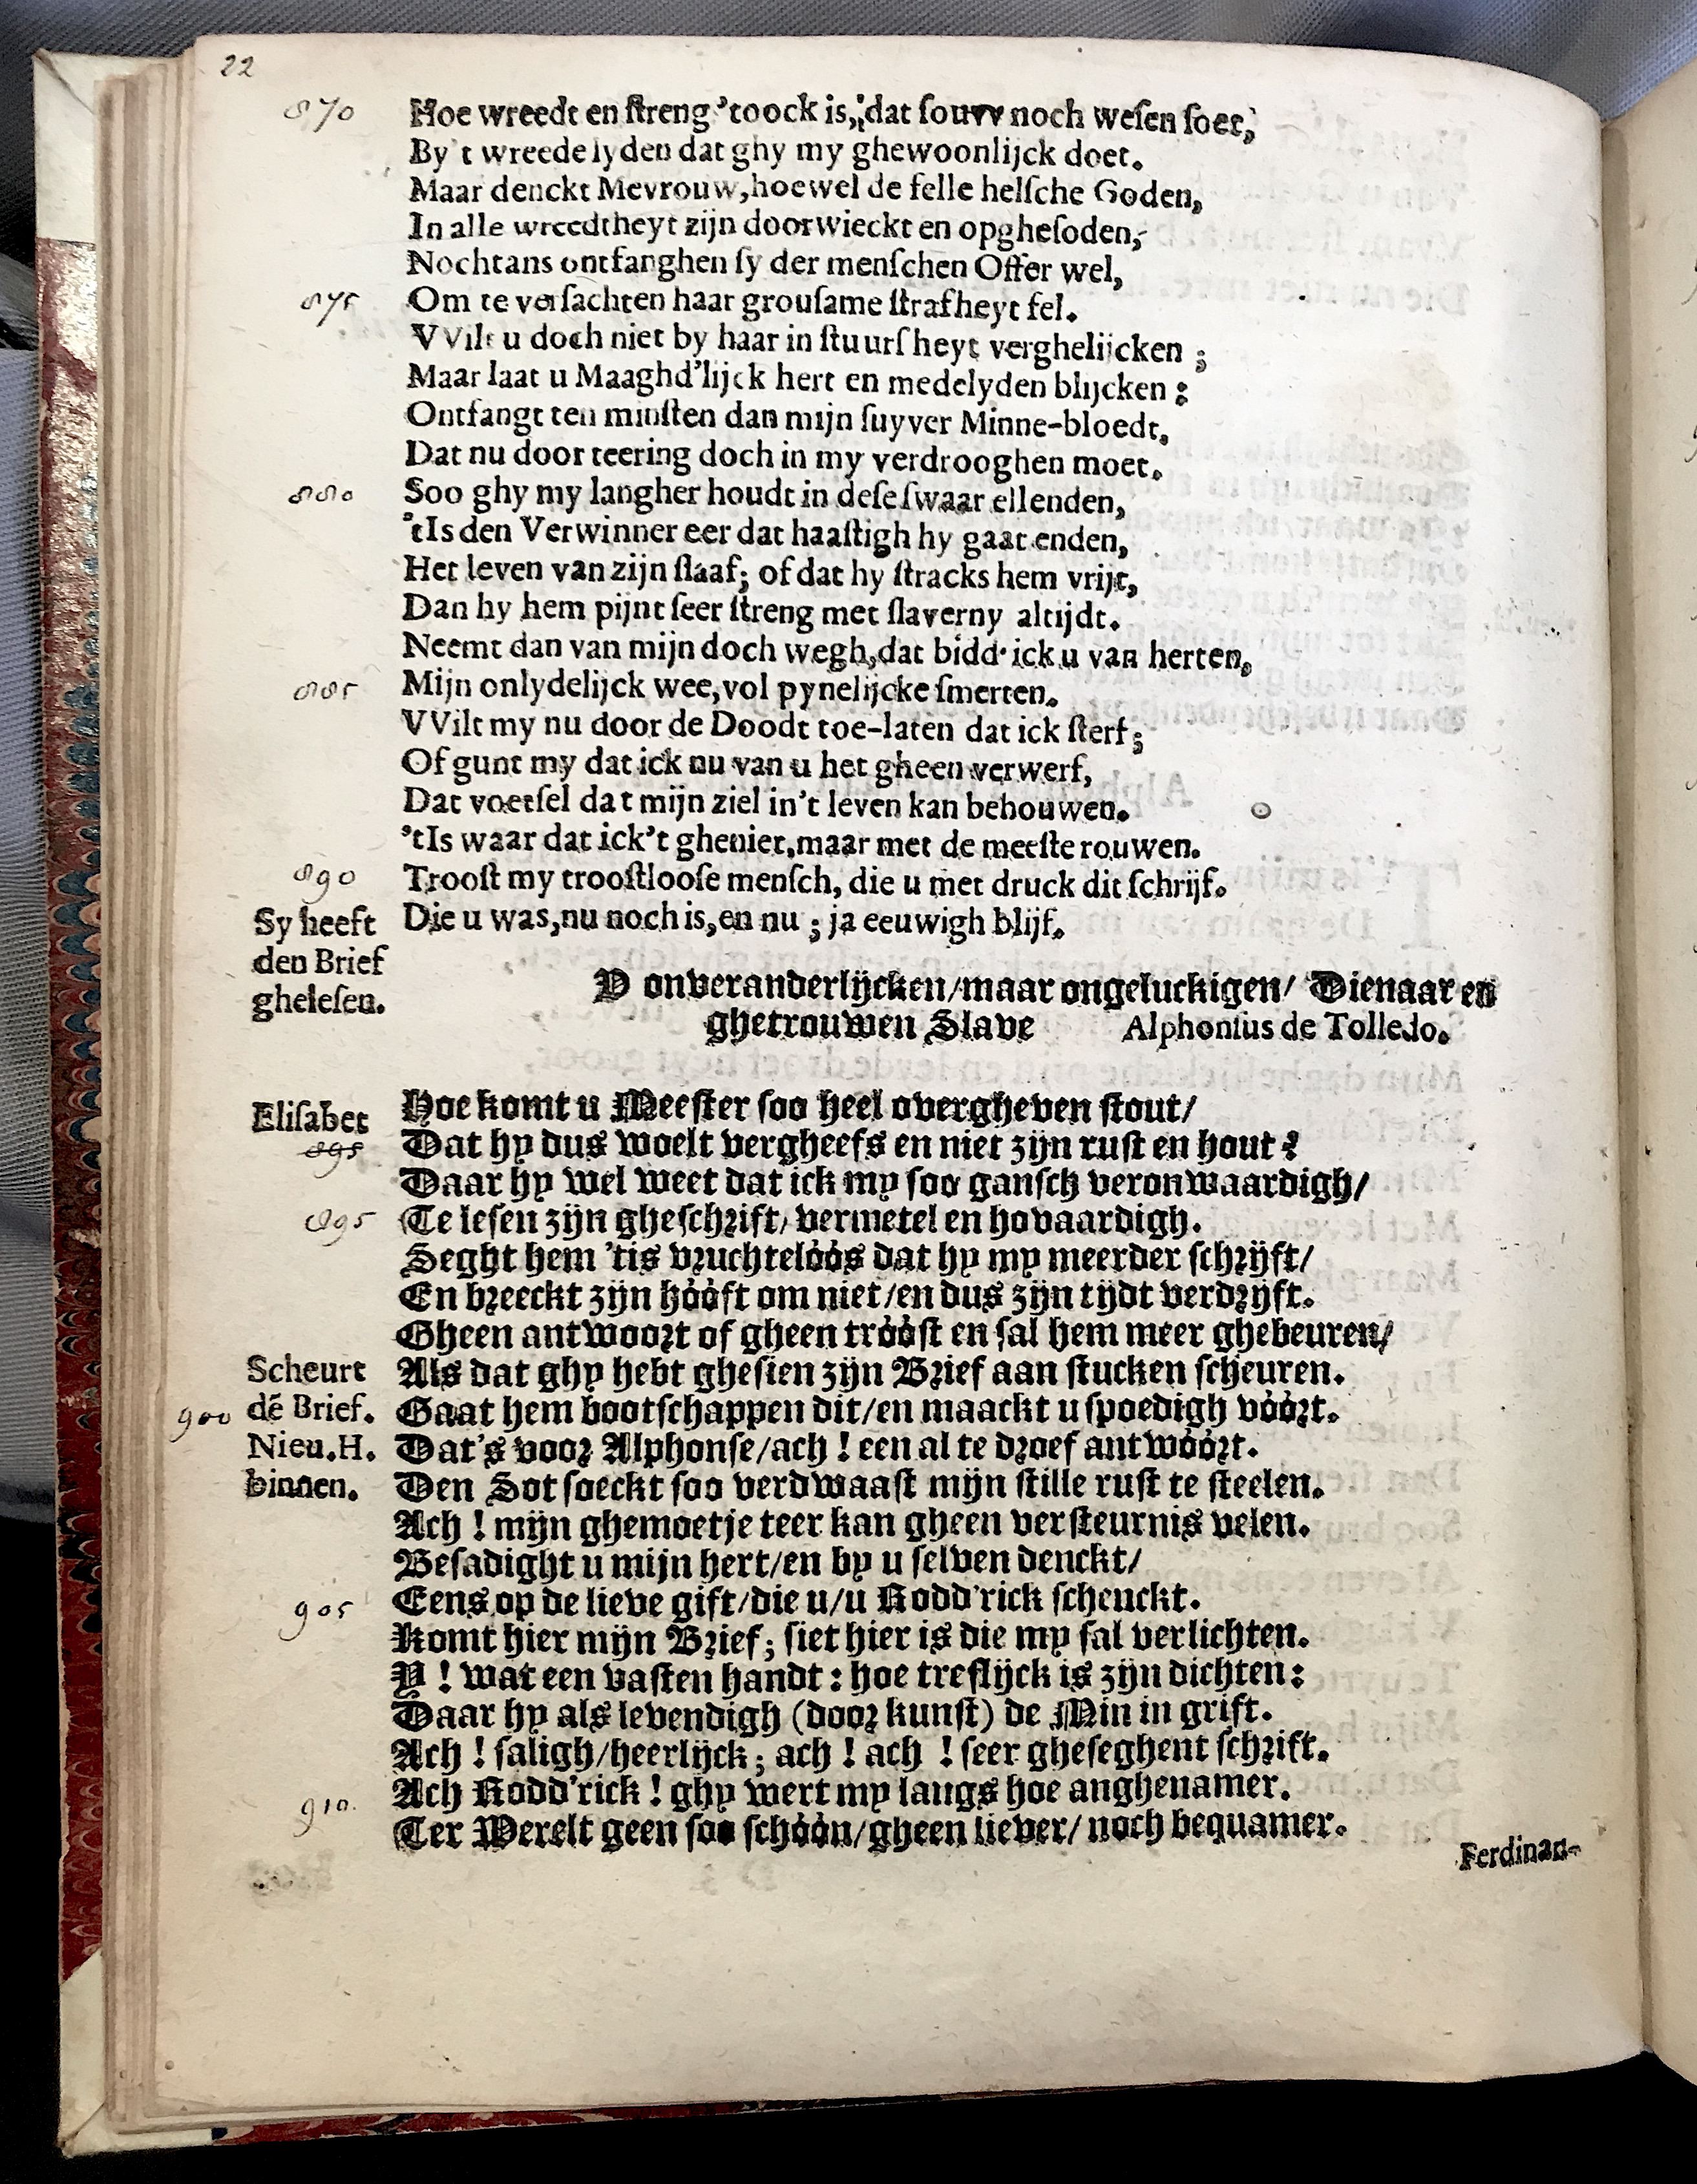 22
870 Hoe wreedt en ſtreng 'toock is, dat ſouvv noch weſen ſoet,
By 't wreede lyden dat ghy my ghewoonlijck doet.
Maar denckt Mevrouw, hoewel de felle helſche Goden,
In alle wreedtheyt zijn doorwieckt en opgheſoden,
Nochtans ontfanghen ſy der menſchen Offer wel,
875 Om te verſachten haar grouſame ſtrafheyt fel.
VVilt u doch niet by haar in ſtuurſheyt verghelijcken ;
Maar laat u Maaghd'lijck hert en medelyden blijcken :
Ontfangt ten minſten dan mijn ſuyver Minne-bloedt,
Dat nu door teering doch in my verdrooghen moet.
880 Soo ghy my langher houdt in deſe ſwaar ellenden,
'tIs den Verwinner eer dat haaſtigh hy gaat enden,
Het leven van zijn ſlaaf; of dat hy ſtracks hem vrijt,
Dan hy hem pijnt ſeer ſtreng met ſlaverny altijdt.
Neemt dan van mijn doch wegh, dat bidd' ick u van herten,
885 Mijn onlydelijck wee, vol pynelijcke ſmerten.
VVilt my nu door de Doodt toe-laten dat ick ſterf;
Of gunt my dat ick nu van u het gheen verwerf,
Dat voetſel dat mijn ziel in't leven kan behouwen.
'tIs waar dat ick't gheniet, maar met de meeſte rouwen.
890 Trooſt my trooſtlooſe menſch, die u met druck dit ſchrijf.
Sy heeft Die u was, nu noch is, en nu ; ja eeuwigh blijf.
den Brief
gheleſen.
V onveranderlijcken/maar ongeluckigen/ Dienaar en
ghetrouwen Slave Alphonſus de Tolledo.
Eliſabet Hoe komt u Meeſter ſoo heel overgheven ſtout/
895 Dat hy dus woelt vergheefs en niet zijn ruſt en hout ?
Daar hy wel weet dat ick my ſoo ganſch veronwaardigh/
895 Te leſen zijn gheſchrift, vermetel en hovaardigh.
Seght hem 'tis vruchtelóós dat hy my meerder ſchrijft/
En breeckt zijn hóóft om niet/en dus zijn tijdt verdrijft.
Gheen antwoort of gheen tróóſt en ſal hem meer ghebeuren/
Scheurt Als dat ghy hebt gheſien zijn Brief aan ſtucken ſcheuren.
900 dē Brief. Gaat hem bootſchappen dit/en maackt u ſpoedigh vóórt.
Nieu.H. Dat's voor Alphonſe/ach ! een al te droef antwóórt.
binnen. Den Sot ſoeckt ſoo verdwaaſt mijn ſtille ruſt te ſteelen.
Ach ! mijn ghemoetje teer kan gheen verſteurnis velen.
Beſadight u mijn hert/en by u ſelven denckt/
905 Eens op de lieve gift/die u/u Rodd'rick ſchenckt.
Komt hier mijn Brief; ſiet hier is die my ſal verlichten.
Y ! wat een vaſten handt : hoe treflijck is zijn dichten :
Daar hy als levendigh (door kunſt) de Min in grift.
Ach ! ſaligh/heerlijck; ach ! ach ! ſeer gheſeghent ſchrift.
910. Ach Rodd'rick ! ghy wert my langs hoe anghenamer.
Ter Werelt geen ſoo ſchóón/gheen liever/ noch bequamer.
Ferdinan-